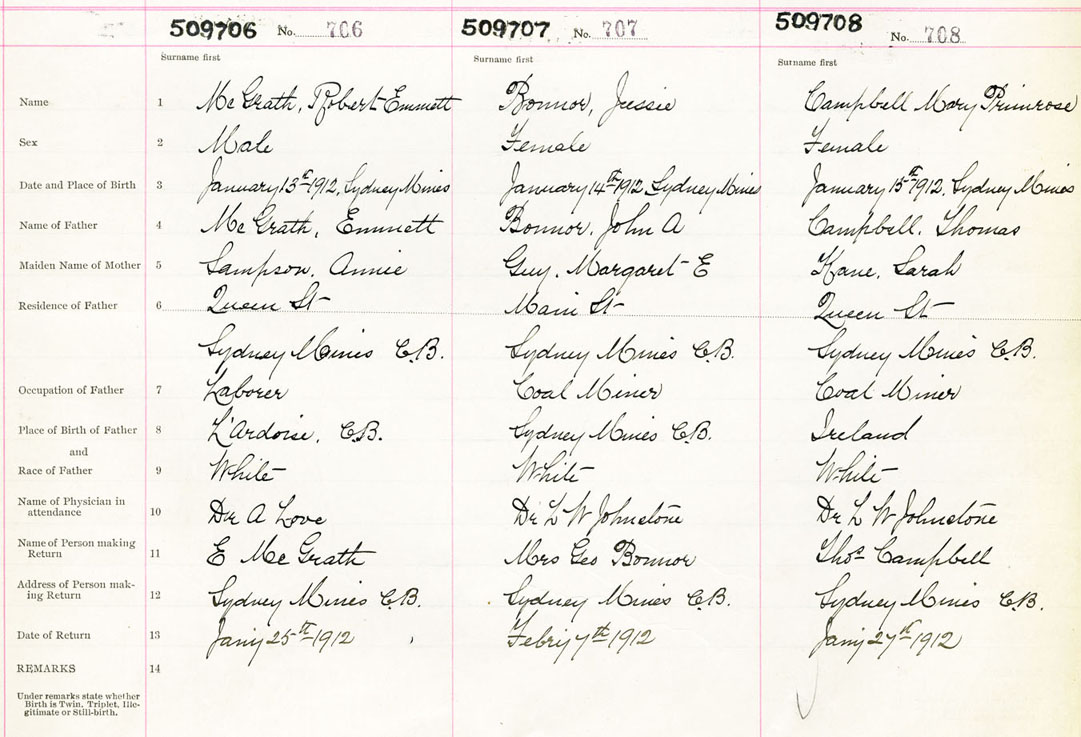 509706 No. 706 509707 No. 707 509708 No. 708
Surname first Surname first Surname first
Name 1 Mc Grath, Robert Emmett Bonnor, Jessie Campbell Mary Primrose
Sex 2 Male Female Female
Date and Place of Birth 3 January 13th 1912, Sydney Mines January 14th 1912, Sydney Mines January 15th 1912, Sydney Mines
Name of Father 4 Mc Grath, Emmett Bonnor, John A Campbell, Thomas
Maiden Name of Mother 5 Sampson, Annie Guy, Margaret E Kane, Sarah
Residence of Father 6 Queen St Main St Queen St
Sydney Mines C.B. Sydney Mines C.B. Sydney Mines C.B.
Occupation of Father 7 Laborer Coal Miner Coal Miner
Place of Birth of Father 8 L'Ardoise, C.B. Sydney Mines C.B. Ireland
and
Race of Father 9 White White White
Name of Physician in
attendance 10 Dr A Love Dr L W Johnstone Dr L W Johnstone
Name of Person making
Return 11 E Mc Grath Mrs Geo Bonnor Thos Campbell
Address of Person mak-
ing Return 12 Sydney Mines C.B. Sydney Mines C.B. Sydney Mines C.B.
Date of Return 13 Jany 25th 1912 Febry 7th 1912 Jany 27th 1912
REMARKS 14
Under remarks state whether
Birth is Twin, Triplet, Ille-
gitimate or Still-birth.